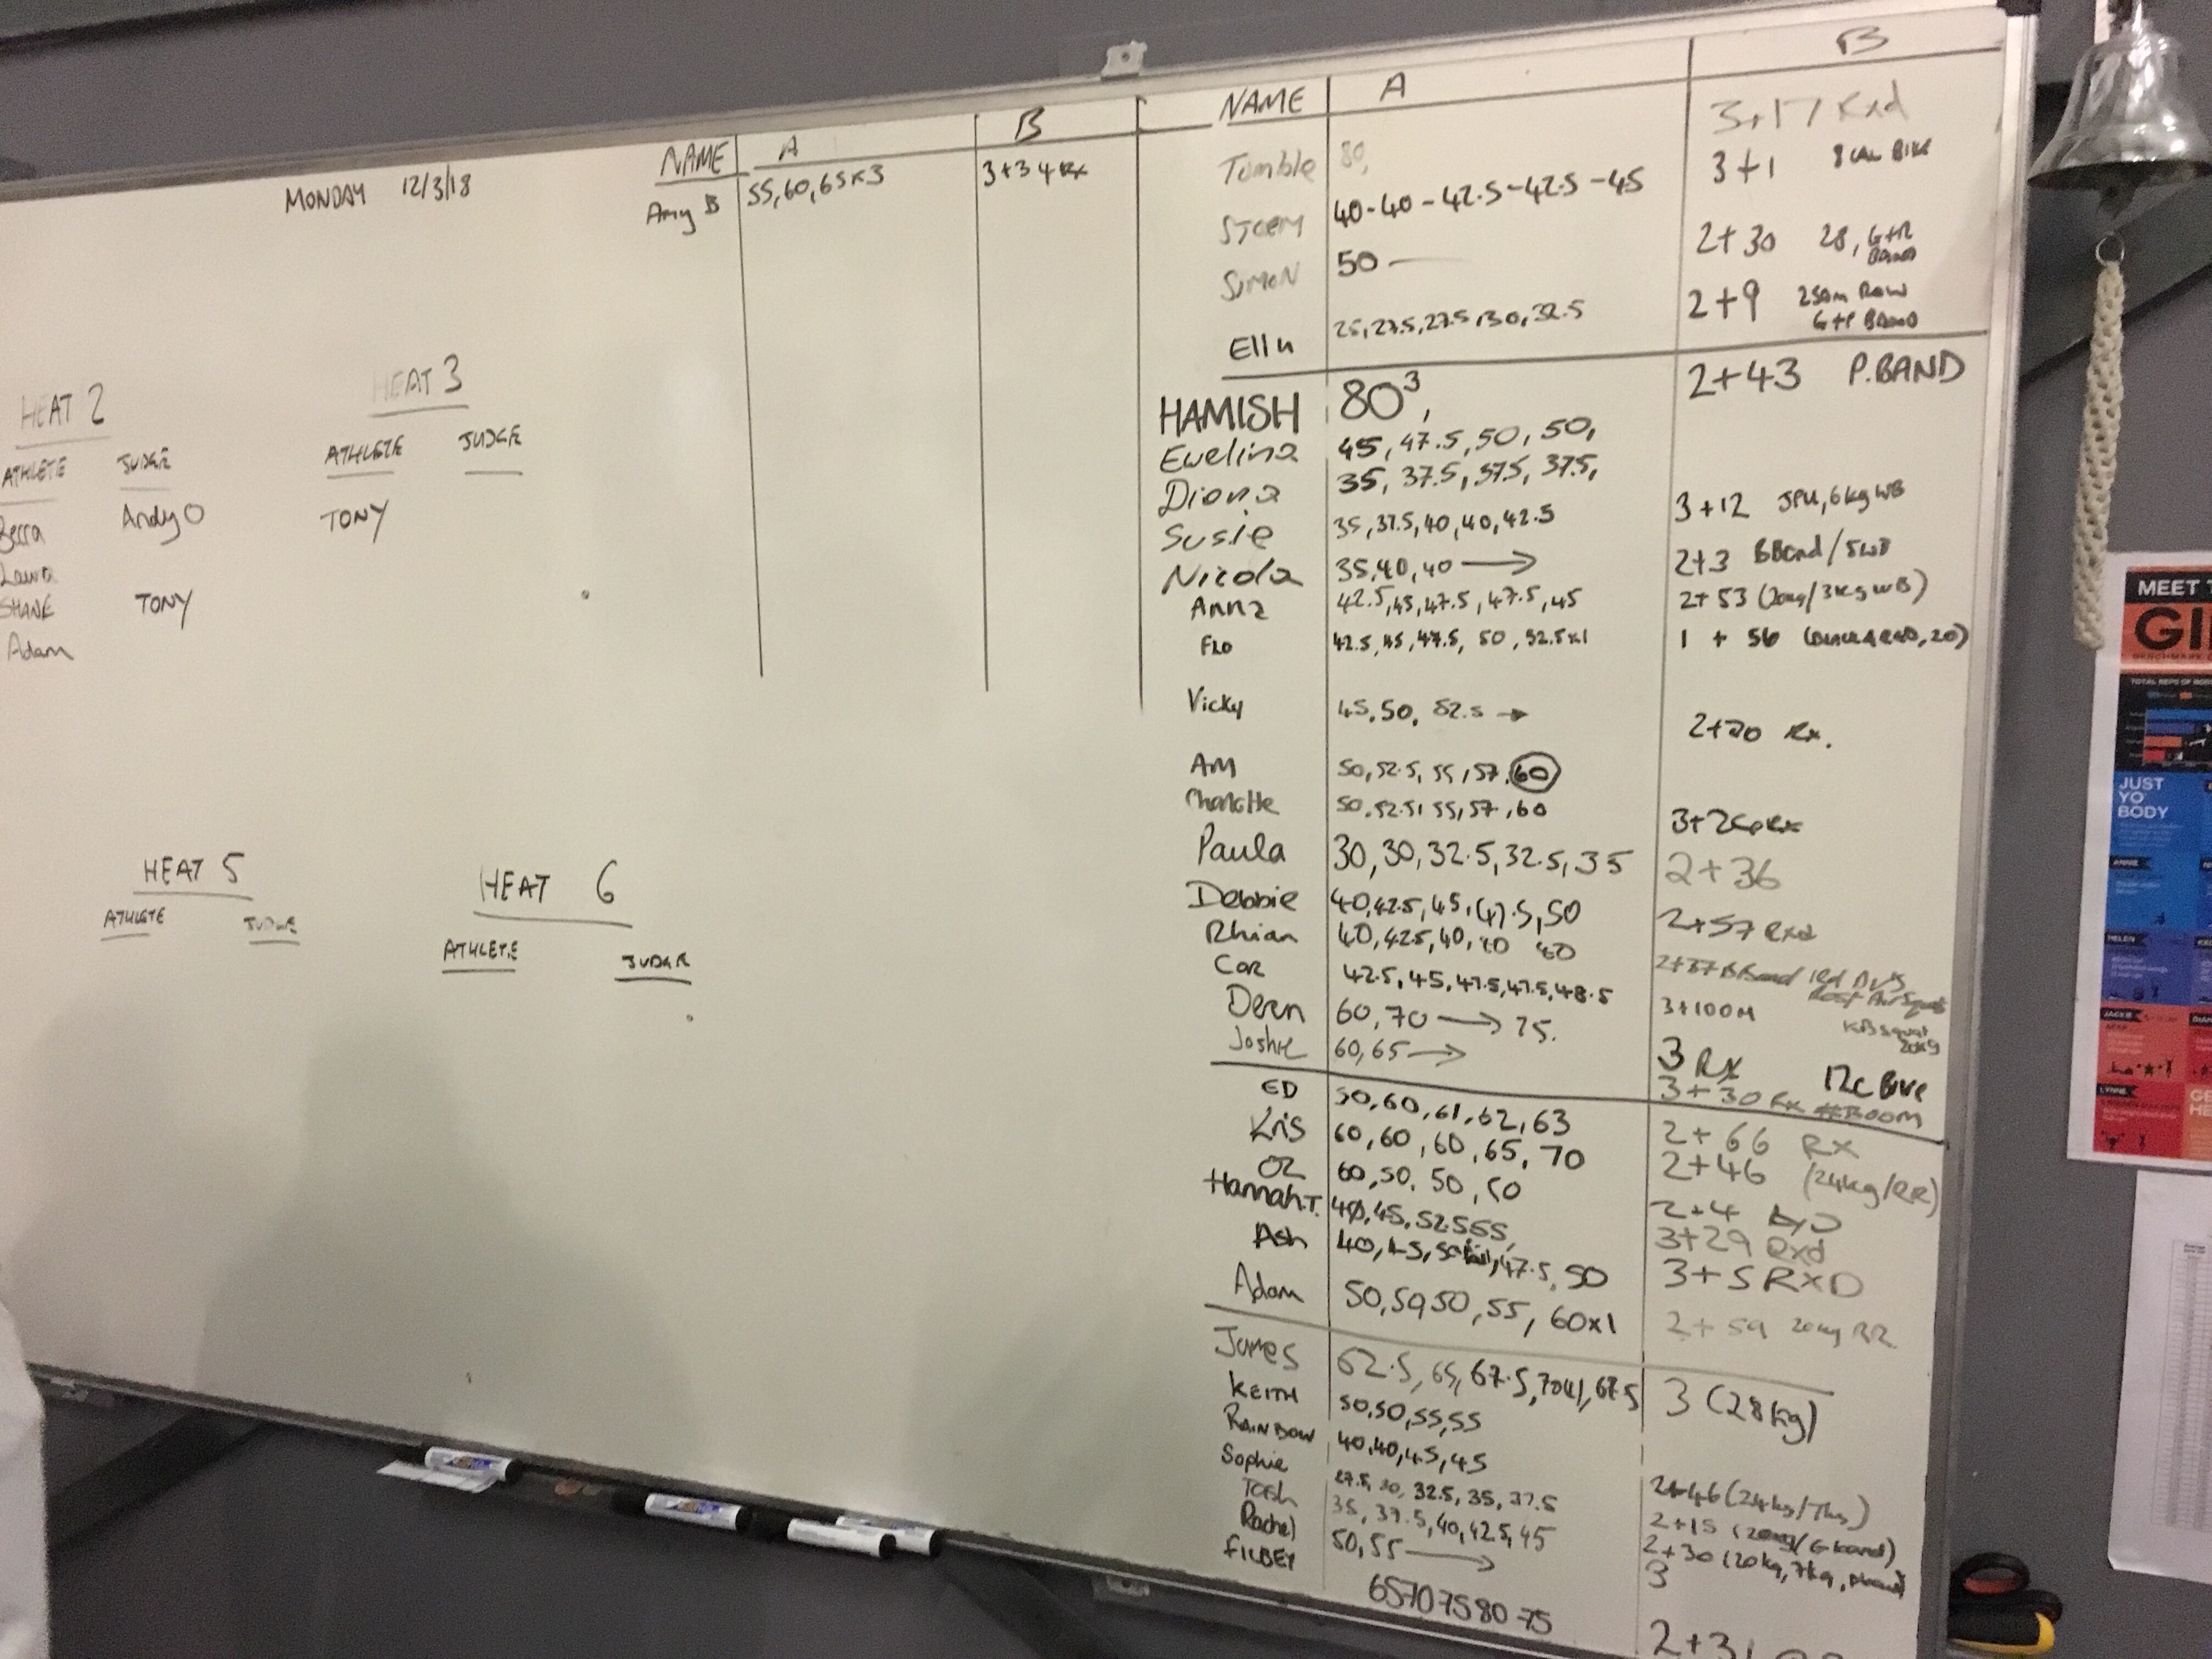 MONDAY 12/3/18
HEAT 2
ATHLETE JUDGE
Becca Andy O
Laura
SHANE TONY
Adam
HEAT 3
ATHLETE JUDGE
TONY
HEAT 5
ATHLETE JUDGE
HEAT 6
ATHLETE JUDGE
NAME A B
Amy B 55,60,65x3 3+34 Rx
NAME A B
Tumble 80, 3+17 Rxd
STORM 40-40-42.5-42.5-45 3+1 8 CAL BIKE
SIMON 50 2+30 28, G+R BAND
25,27.5,27.5,30,32.5 2+9 250m ROW
BAND
HAMISH 80³, 2+43 P.BAND
Ewelina 45,47.5,50,50,
Diona 35,37.5,37.5,37.5,
Susie 35,37.5,40,40,42.5 3+12 JPU, 6kg WB
Nicola 35,40,40 → 2+3 BBand/5WB
Anna 42.5,45,47.5,47.5,45 2+53 (20kg/3kg WB)
FLO 42.5,45,47.5,50,52.5x1 1+56
Vicky 45,50,52.5 → 2+20 Rx.
AM 50,52.5,55,57,60
Charlotte 50,52.5,55,57,60 3+26 Rx
Paula 30,30,32.5,32.5,35 2+36
Debbie 40,42.5,45,47.5,50 2+57 Rxd
Rhian 40,42.5,40,40 40 2+37 BBand red
Cor 42.5,45,47.5,47.5,48.5 3+100M KB squat 20kg
60,70 → 75. 3 Rx 12c BIKE
Joshie 60,65 → 3+30 Rx
ED 50,60,61,62,63 2+66 RX
Kris 60,60,60,65,70 2+46 (24kg/RR)
OZ 60,50,50,50 2+4
Hannah T. 40,45,52.5 55, 3+29 Rxd
Ash 40,45,50 fail,47.5,50 3+5 RXD
Adam 50,50,50,55,60x1 2+59 20kg RR
James 62.5,65,67.5,70(4),67.5 3 (28kg)
KEITH 50,50,55,55
RAINBOW 40,40,45,45
Sophie 27.5,30,32.5,35,37.5 2+46 (24kg/7kg)
Tosh 35,37.5,40,42.5,45 2+15 (20kg/G band)
Rachel 50,55 → 2+30 (20kg,7kg,
FILBEY 65 70 75 80 75 3
2+31
MEET T
GI
TOTAL REPS OF
JUST
YO
BODY
ANNIE
HELEN
JACKIE
DIAN
LYNNE
GE
HE